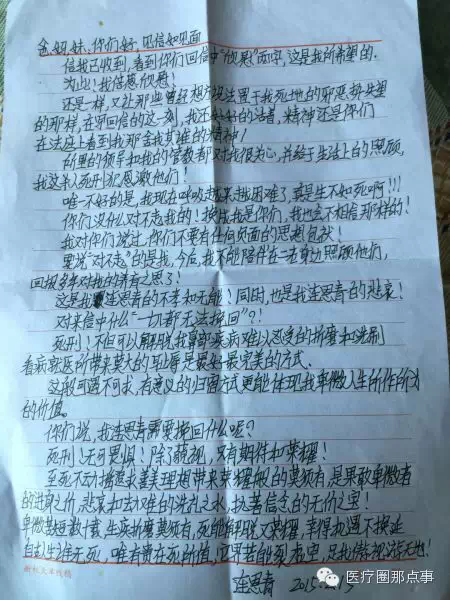 爸、妈、妹、你们好，见信如见面
信我已收到，看到你们回信中“欣慰”两字，这是我所希望的.
为此！我倍感欣慰！
还是一样，又让那些曾经想方设法置于我死地的邪恶势失望
的那样，在写回信的这一刻，我还好好的活着，精神还是你们
在法庭上看到我那舍我其谁的精神！
所里的领导和我的管教都对我很关心，并给于生活上的照顾，
我这杀人死刑犯感激他们！
唯一不好的是，我现在呼吸越来越困难了，真是生不如死啊！！！
你们没什么对不起我的！换成我是你们，我也会不相信那样的！
我对你们说过，你们不要有任何负面的思想包袱！
要说“对不起”的是我，今后，我不能陪伴在一舌身边照顾他们，
回报多年对我的养育之恩了！
这是我连恩青的不孝和无能！同时，也是我连恩青的悲哀！
对来信中什么“一切都无法挽回”？！
死刑！不但可以解脱我鼻部疾病难以忍受的折磨和洗刷
看病就医所带来莫大的耻辱是最好最完美的方式.
这般可遇不可求，有意义的归宿方式更能体现我卑微人生所作所为
的价值。
你们说，我连恩青需要挽回什么呢？
死刑！无可畏惧！除了藐视，只有期待和荣耀！
至死不动摇追求善美理想带来荣耀般的莫须有，是果敢卑微者
的进身之价，悲哀和去权难的洗礼之求，执著信念的无价之宝！
卑微甚短数十载，生疾折磨莫须有，死能解脱又荣耀，幸得机遇不挨延
自古人生谁无死，唯有贵在死价值，宜果苦能裂夜空，足我傲视游天地！
连恩青 2015
新秋文本线稿
医疗圈那点事